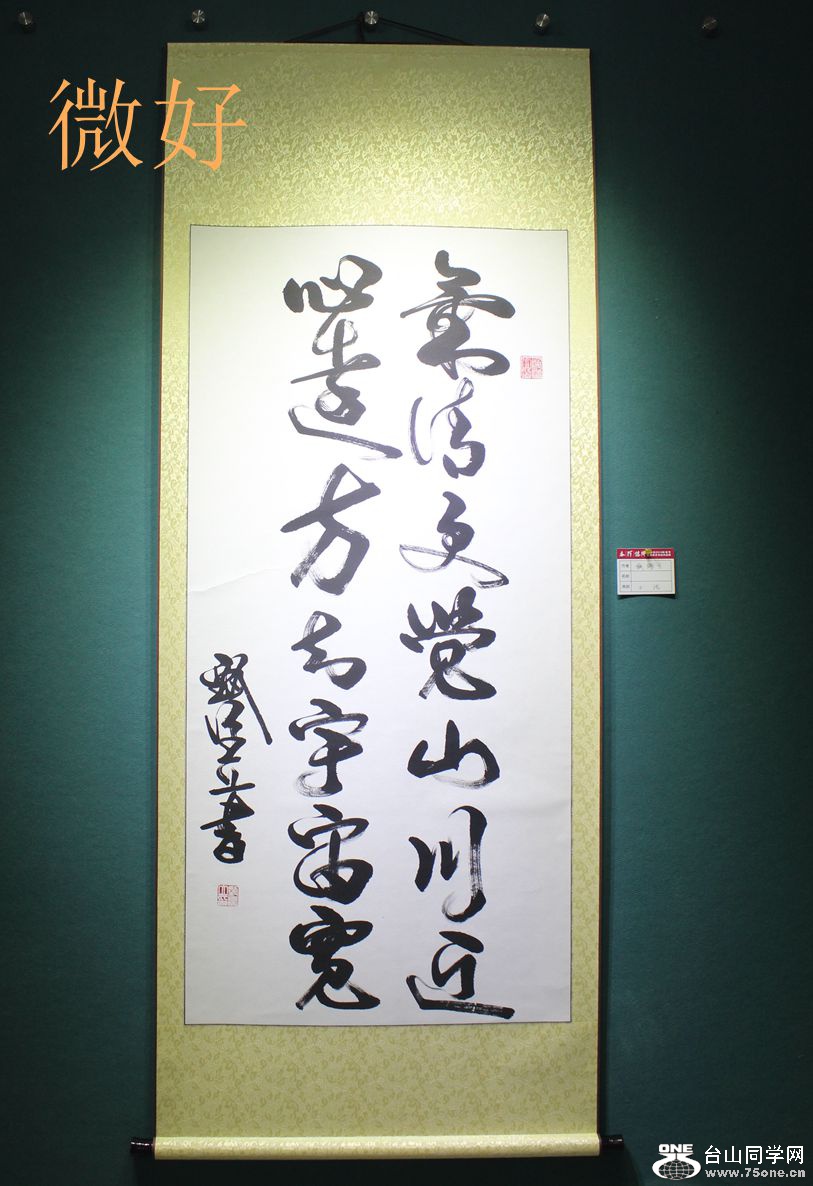 微好
氣清更覺山川近
心遠方知宇宙寬
書
ONE
台山同学网
www.75one.cn